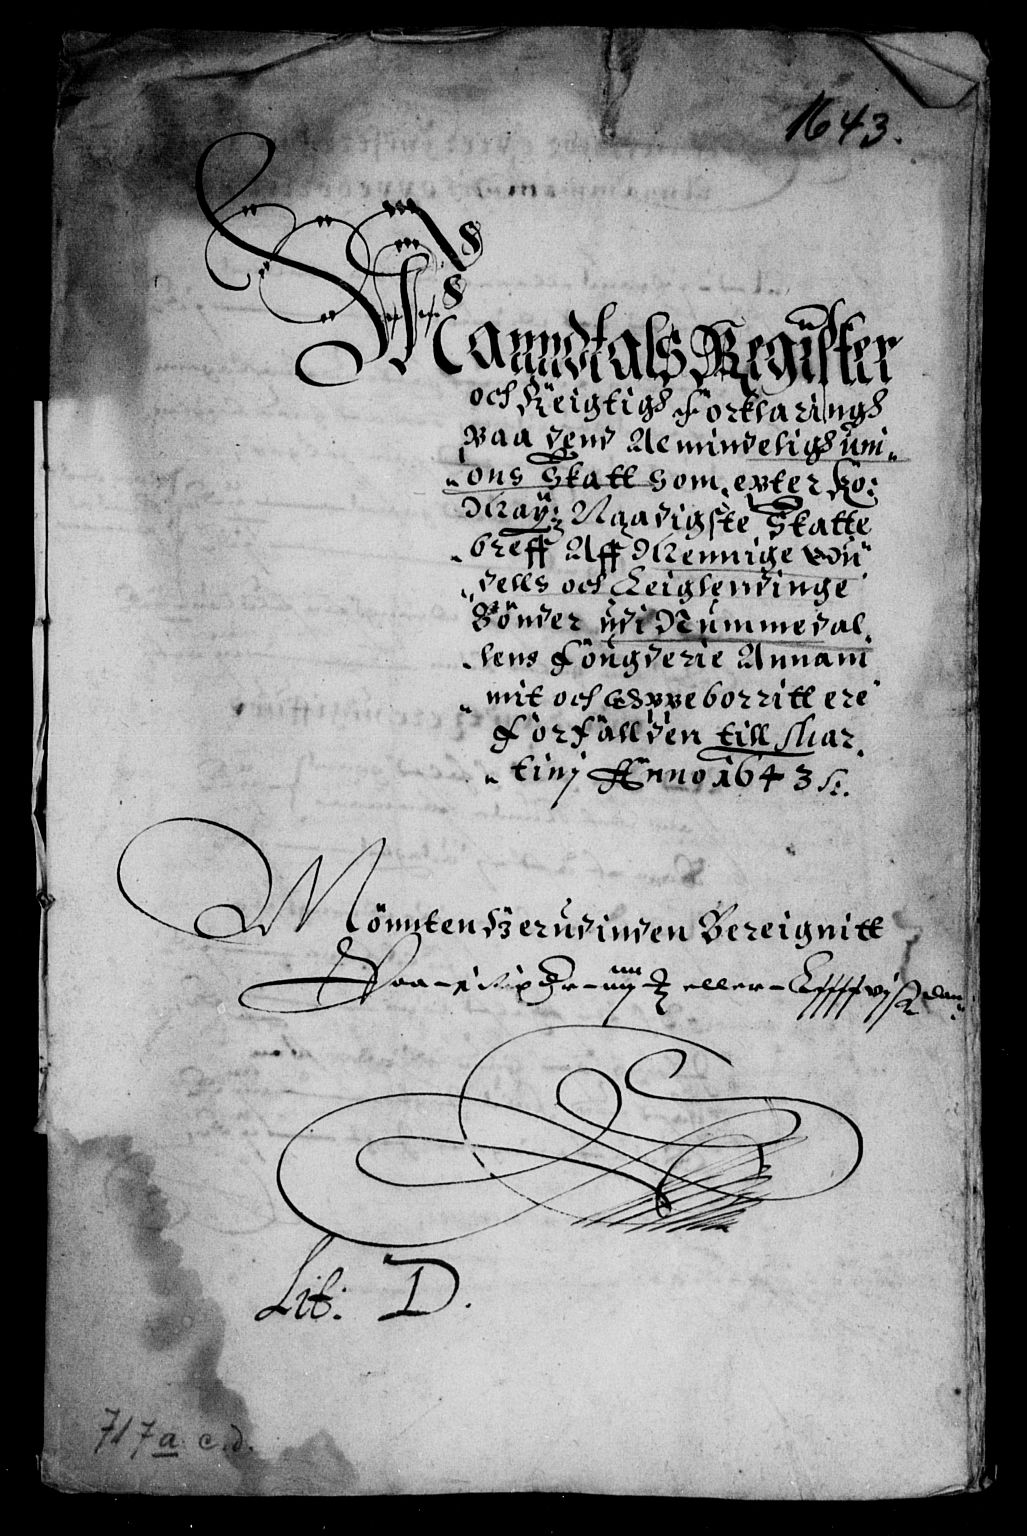 1643.
Manndtals Register
och Reigtigh Forklaringh
Paa dend Almindeligh uni„
„ons Skatt som, epter Ko:
May: Naadigste Skatte
„breff Aff Mennige Odü
„dells och Leiglendinge
Bönder udi Nummedal„
„lens Fougderie Annam„
„mit och Oppeborritt ere
Forfallden till Mar„
„tinj Anno 1643
Mönnten herudinden Bereignitt
Paa eller dan„
Lit: D.
717 a c. d.